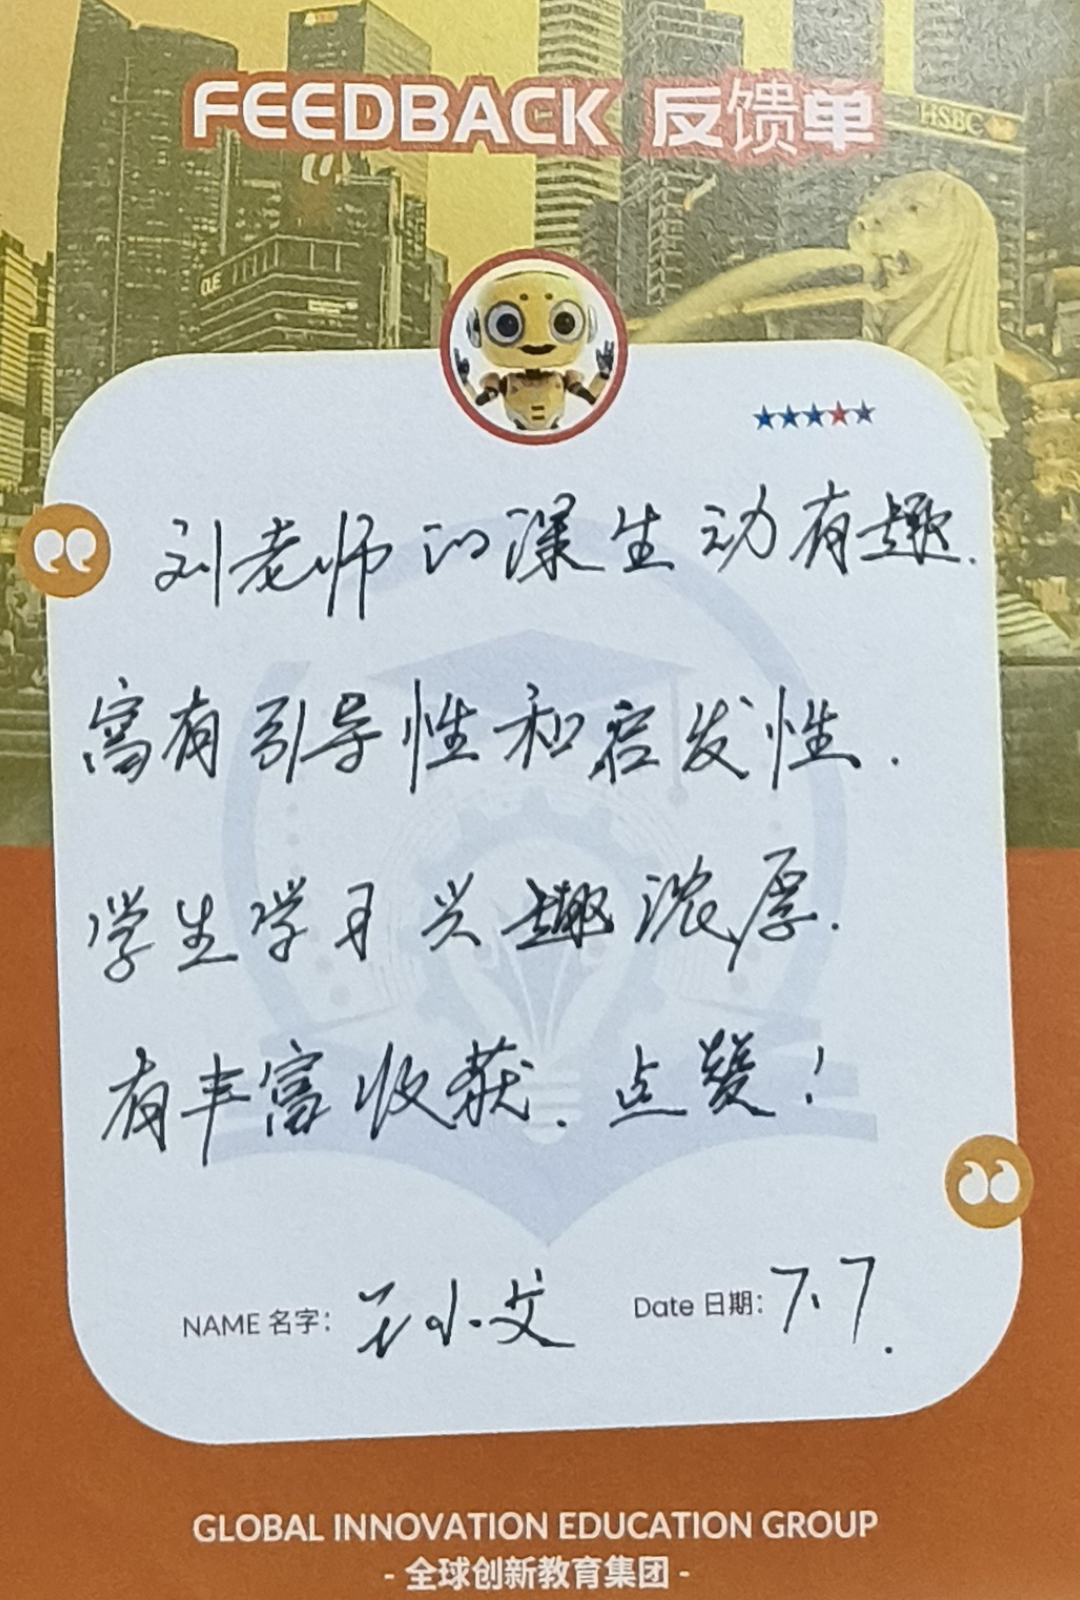 FEEDBACK 反馈单
HSBC
刘老师的课生动有趣.
富有引导性和启发性.
学生学习兴趣浓厚.
有丰富收获. 点赞!
NAME 名字: 王小文 Date 日期: 7.7.
GLOBAL INNOVATION EDUCATION GROUP
- 全球创新教育集团 -